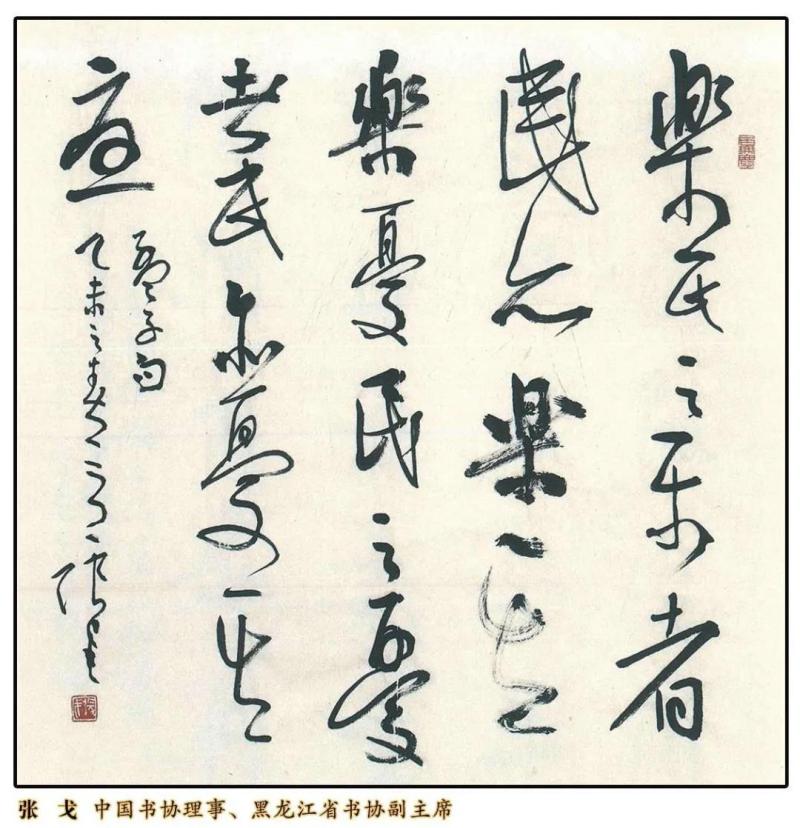 樂民之樂者
民亦樂其
樂憂民之憂
者民亦憂其
憂
孟子句
乙未之春 張戈
张 戈 中国书协理事、黑龙江省书协副主席